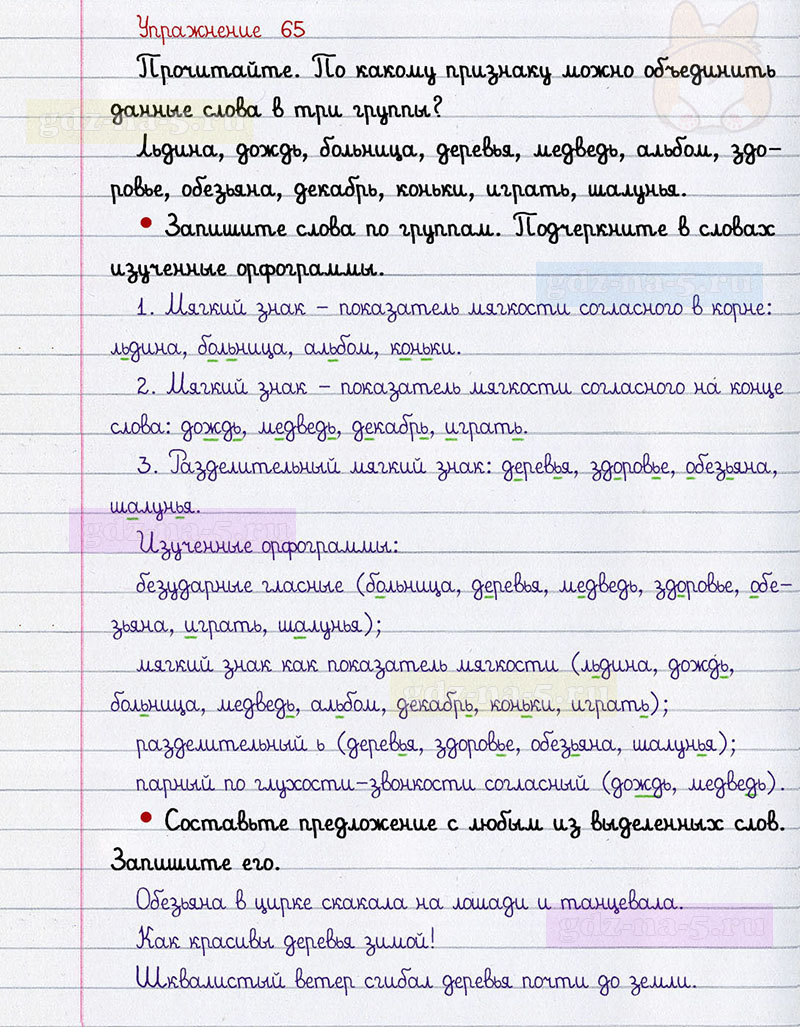 Упражнение 65
Прочитайте. По какому признаку можно объединить
данные слова в три группы?
gdz-na-5.ru
Льдина, дождь, больница, деревья, медведь, альбом, здо-
ровье, обезьяна, декабрь, коньки, играть, шалунья.
• Запишите слова по группам. Подчеркните в словах
изученные орфограммы.
gdz-na-5.ru
1. Мягкий знак – показатель мягкости согласного в корне:
льдина, больница, альбом, коньки.
2. Мягкий знак – показатель мягкости согласного на конце
слова: дождь, медведь, декабрь, играть.
3. Разделительный мягкий знак: деревья, здоровье, обезьяна,
шалунья.
gdz-na-5.ru
Изученные орфограммы:
безударные гласные (больница, деревья, медведь, здоровье, обе-
зьяна, играть, шалунья);
мягкий знак как показатель мягкости (льдина, дождь,
gdz-na-5.ru
больница, медведь, альбом, декабрь, коньки, играть);
разделительный ь (деревья, здоровье, обезьяна, шалунья);
парный по глухости-звонкости согласный (дождь, медведь).
• Составьте предложение с любым из выделенных слов.
Запишите его.
Обезьяна в цирке скакала на лошади и танцевала.
gdz-na-5.ru
Как красивы деревья зимой!
Шквалистый ветер сгибал деревья почти до земли.